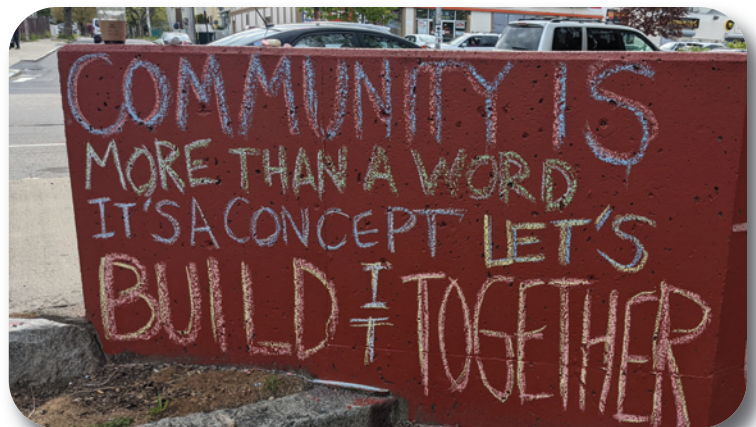 COMMUNITY IS
MORE THAN A WORD
IT'S A CONCEPT LET'S
BUILD IT TOGETHER